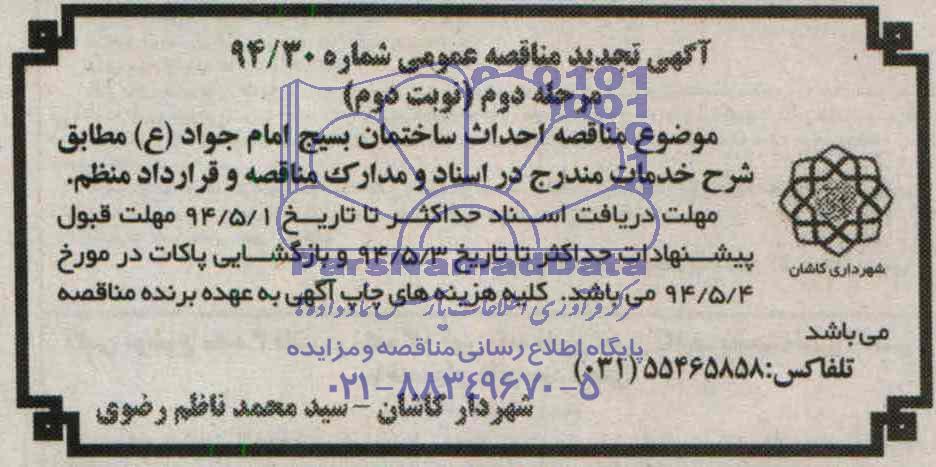 آگهی تجدید مناقصه عمومی شماره ۹۴/۳۰
مرحله دوم (نوبت دوم)
موضوع مناقصه احداث ساختمان بسیج امام جواد (ع) مطابق
شرح خدمات مندرج در اسناد و مدارک مناقصه و قرارداد منظم.
مهلت دریافت اسناد حداکثر تا تاریخ ۹۴/۵/۱ مهلت قبول
پیشنهادات حداکثر تا تاریخ ۹۴/۵/۳ و بازگشایی پاکات در مورخ
۹۴/۵/۴ می باشد. کلیه هزینه های چاپ آگهی به عهده برنده مناقصه
می باشد
تلفاکس: ۵۵۴۶۵۸۵۸ (۰۳۱)
شهردار کاشان - سید محمد ناظم رضوی
شهرداری کاشان
ParsNamadData
پایگاه اطلاع رسانی مناقصه و مزایده
۰۲۱-۸۸۳۴۹۶۷۰-۵